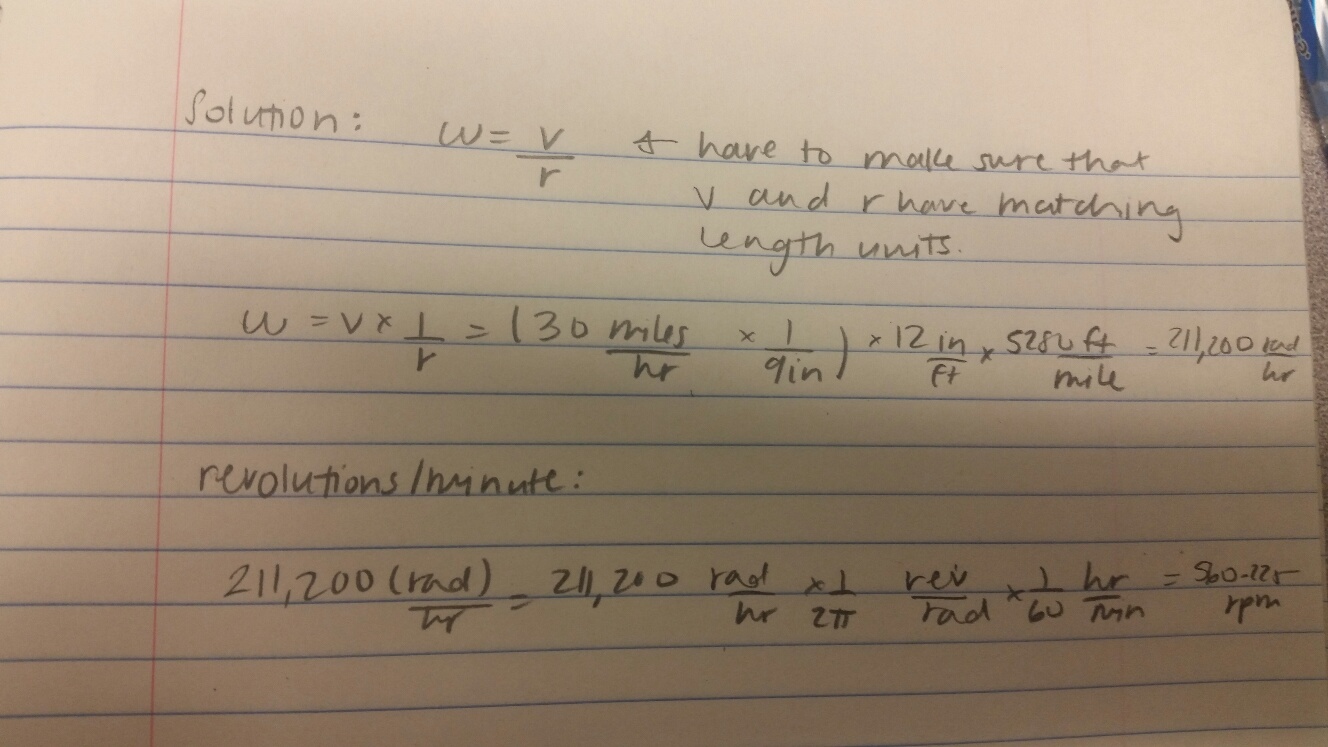 Solution: ω = v/r ← have to make sure that
v and r have matching
length units.
ω = v × 1/r = (30 miles/hr × 1/9in) × 12 in/ft × 5280 ft/mile = 211,200 rad/hr
revolutions/minute:
211,200 (rad)/hr = 211,200 rad/hr × 1/2π rev/rad × 1/60 hr/min = 560.225 rpm